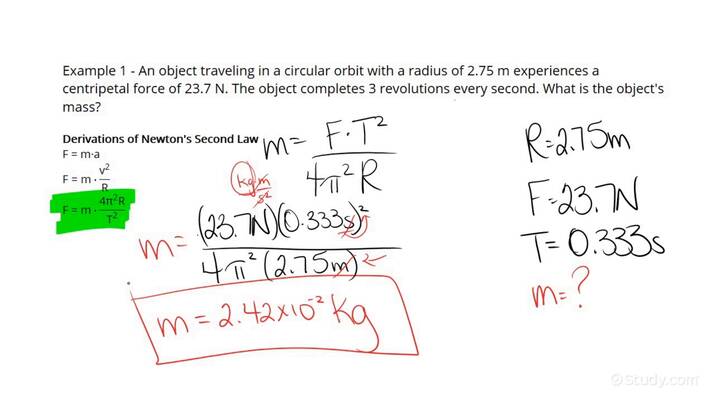 Example 1 - An object traveling in a circular orbit with a radius of 2.75 m experiences a
centripetal force of 23.7 N. The object completes 3 revolutions every second. What is the object's
mass?
Derivations of Newton's Second Law
F = m·a
F = m · v²/R
F = m · 4π²R/T²
m = F·T²/4π²R
kg m/s²
m = (23.7N)(0.333s)²/4π²(2.75m)
m = 2.42×10⁻² Kg
R=2.75m
F=23.7N
T=0.333s
m=?
©Study.com